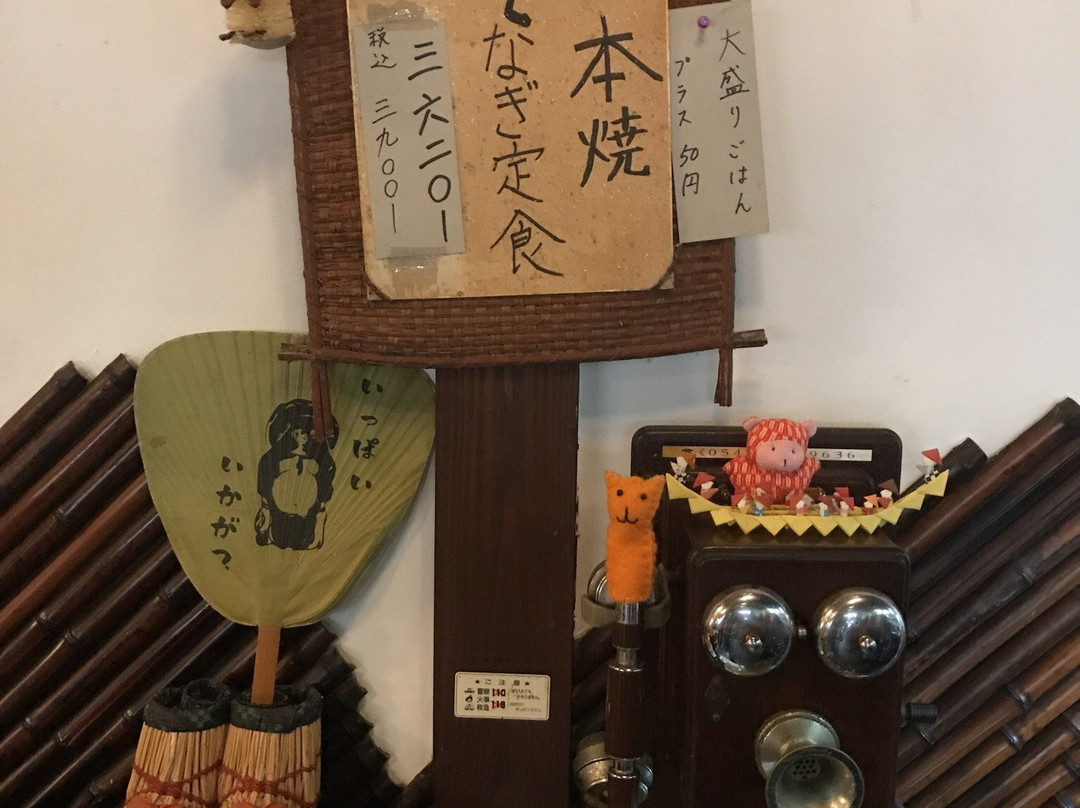 大盛りごはん
プラス 50円
本焼
なぎ定食
三六二〇ー
税込 三九〇〇ー
いっぱい
いかが？
★ご注意★
警察 110
火事 119
救急